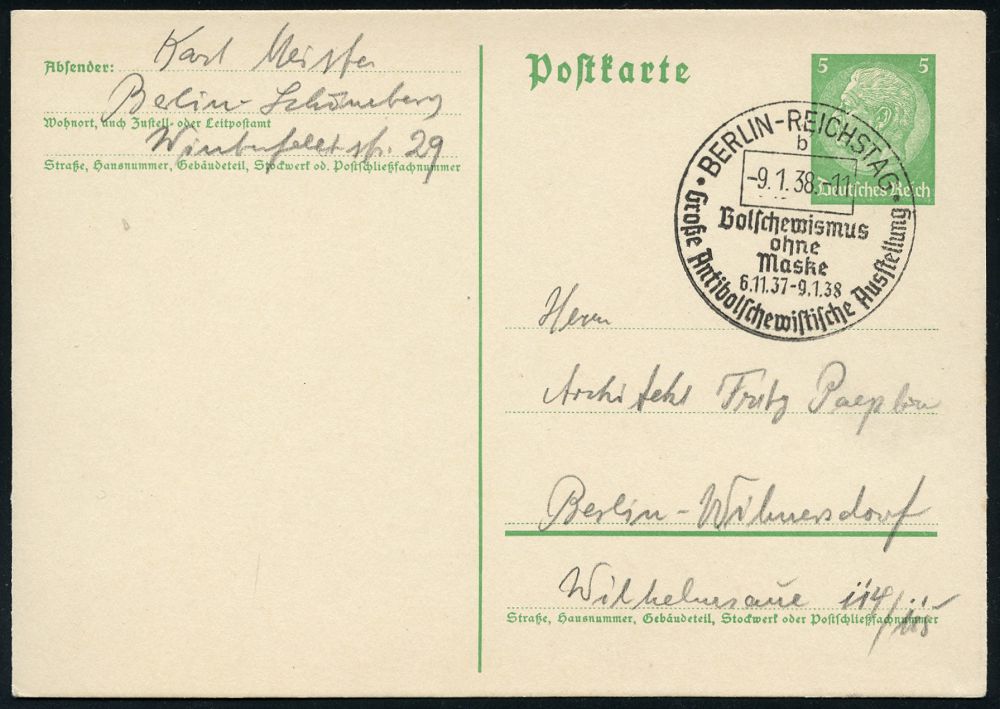 Karl Meister
Absender:
Berlin-Schöneberg
Wohnort, auch Zustell- oder Leitpostamt
Winterfeldtstr. 29
Straße, Hausnummer, Gebäudeteil, Stockwerk od. Postschließfachnummer
Postkarte
5 5
Deutsches Reich
BERLIN-REICHSTAG
b
-9.1.38.-11
Bolschewismus
ohne
Maske
6.11.37-9.1.38
Große Antibolschewistische Ausstellung
Herrn
Architekt Fritz
Berlin-Wilmersdorf
Wilhelmsaue 114/115
Straße, Hausnummer, Gebäudeteil, Stockwerk oder Postschließfachnummer